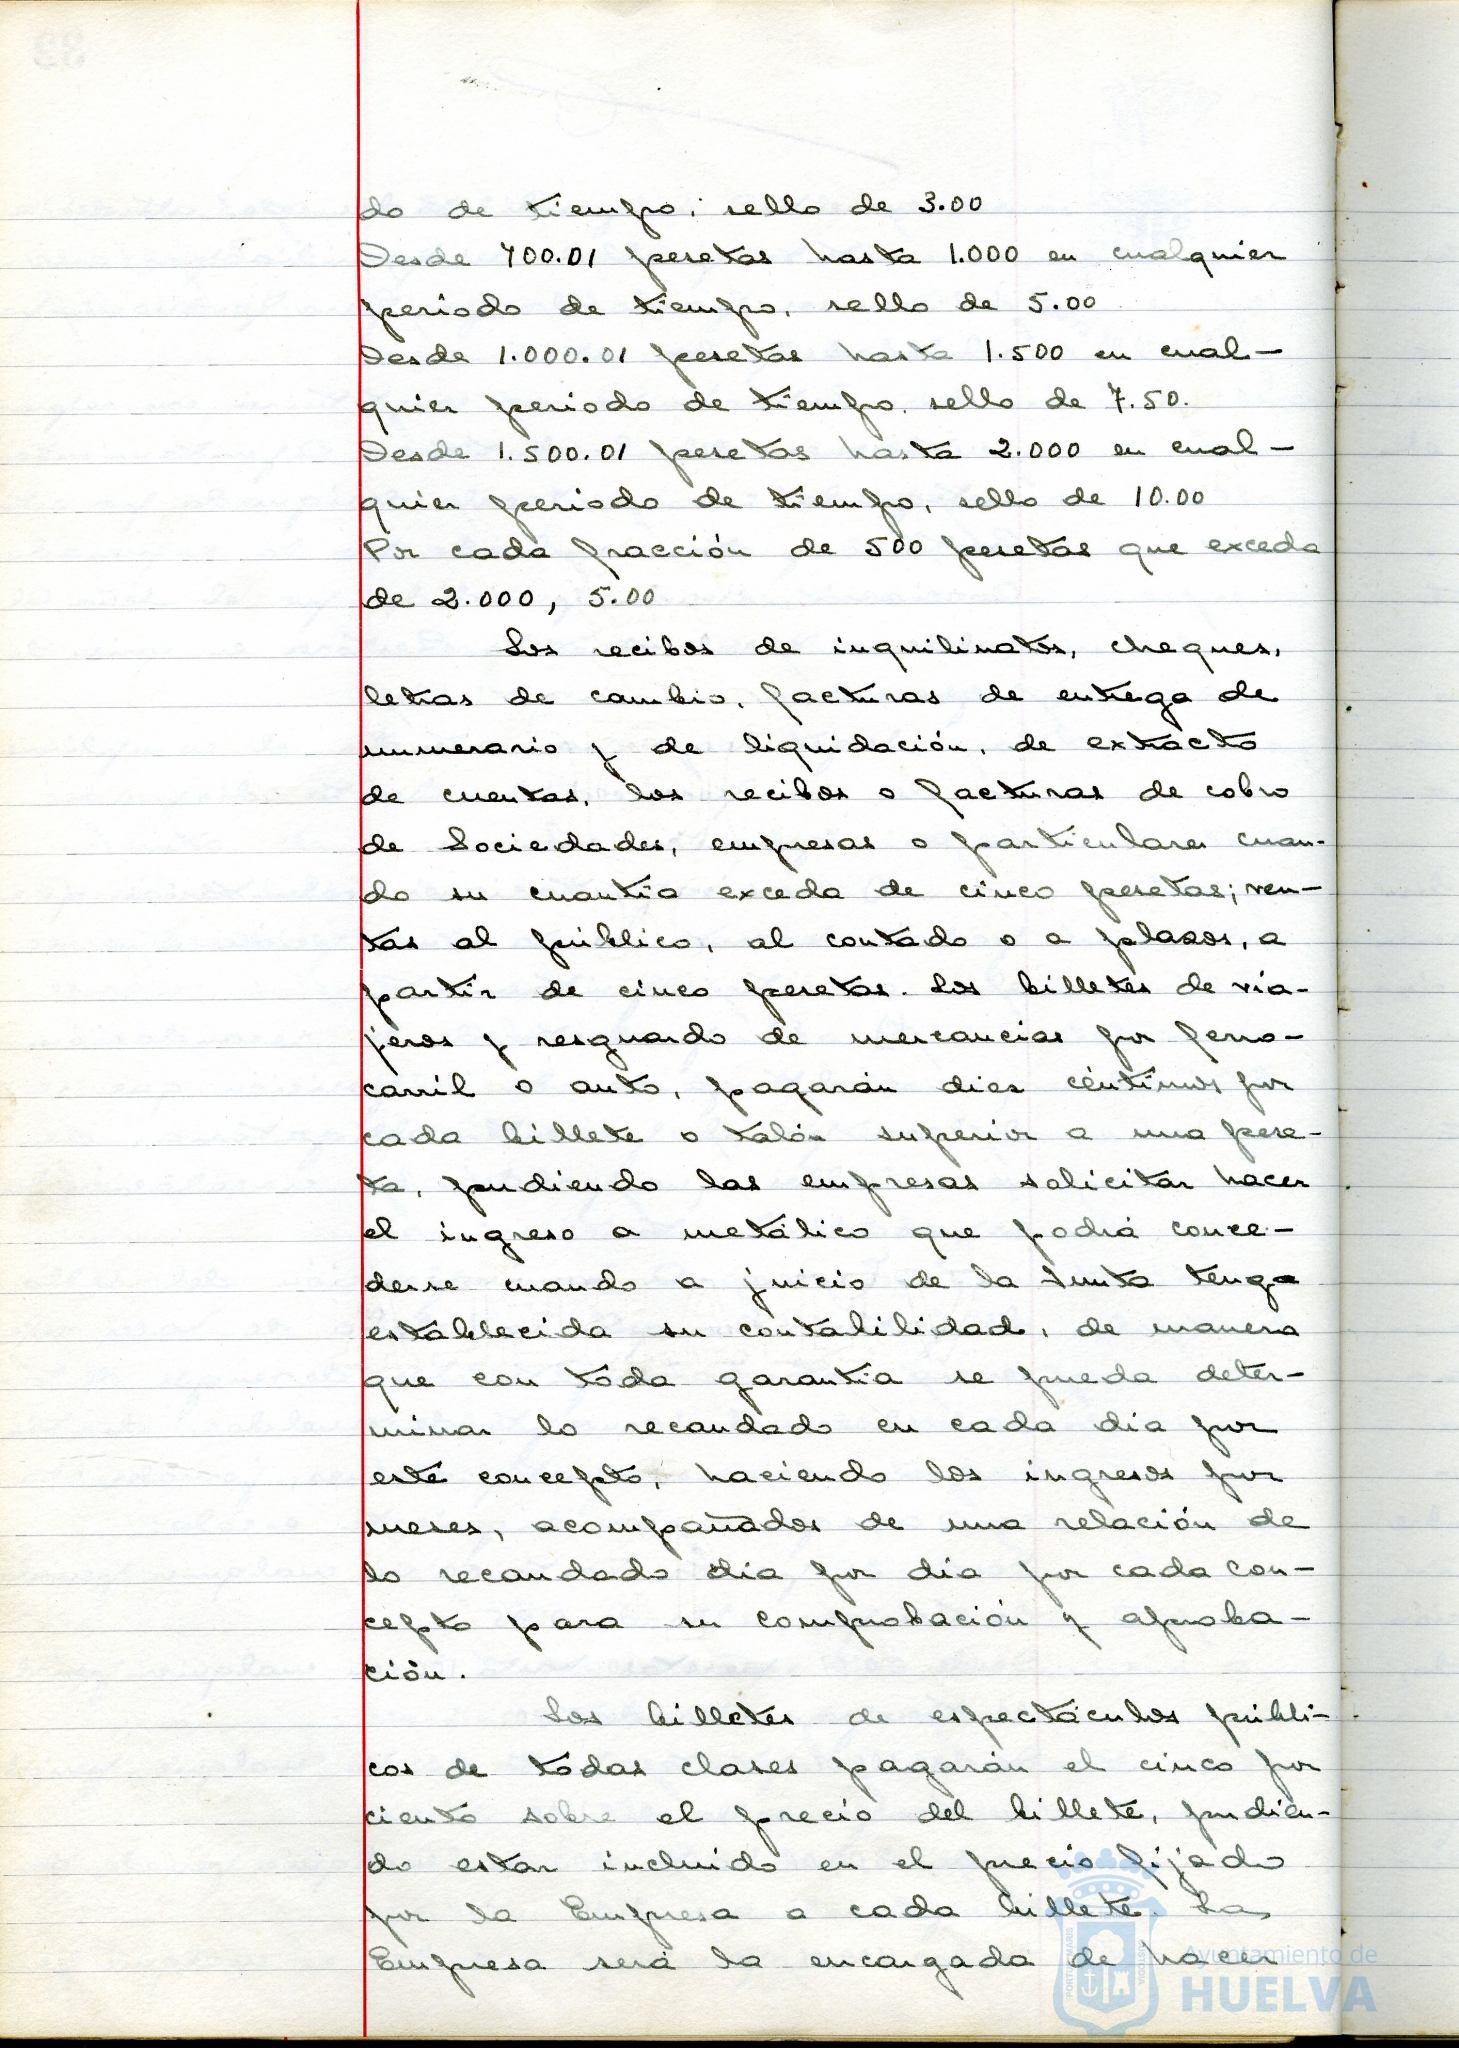 do de tiempo, sello de 3.00
Desde 700.01 pesetas hasta 1.000 en cualquier
periodo de tiempo, sello de 5.00
Desde 1.000.01 pesetas hasta 1.500 en cual-
quier periodo de tiempo, sello de 7.50.
Desde 1.500.01 pesetas hasta 2.000 en cual-
quier periodo de tiempo, sello de 10.00
Por cada fracción de 500 pesetas que exceda
de 2.000, 5.00
Los recibos de inquilinatos, cheques,
letras de cambio, facturas de entrega de
numerario y de liquidación, de extracto
de cuentas, los recibos o facturas de cobro
de Sociedades, empresas o particulares cuan-
do su cuantía exceda de cinco pesetas; ven-
tas al público, al contado o a plazos, a
partir de cinco pesetas. Los billetes de via-
jeros y resguardo de mercancías por ferro-
carril o auto, pagarán diez céntimos por
cada billete o talón superior a una pese-
ta, pudiendo las empresas solicitar hacer
el ingreso a metálico que podrá conce-
derse cuando a juicio de la Junta tenga
establecida su contabilidad, de manera
que con toda garantía se pueda deter-
minar lo recaudado en cada día por
este concepto, haciendo los ingresos por
meses, acompañados de una relación de
lo recaudado día por día por cada con-
cepto para su comprobación y aproba-
ción.
Los billetes de espectáculos públi-
cos de todas clases pagarán el cinco por
ciento sobre el precio del billete, pudien-
do estar incluido en el precio fijado
por la Empresa a cada billete. La
Empresa será la encargada de hacer
Ayuntamiento de
HUELVA